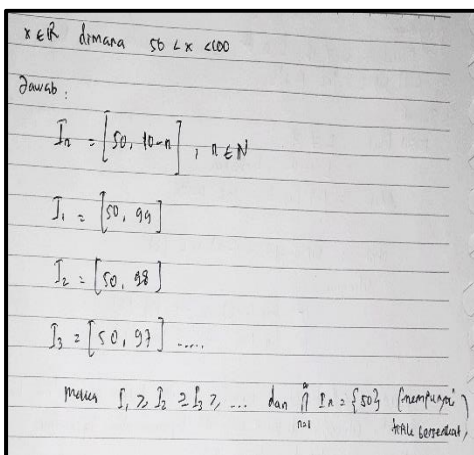 x ∈ ℝ dimana 50 < x < 100
Jawab :
Iₙ = [50, 10-n] , n ∈ N
I₁ = [50, 99]
I₂ = [50, 98]
I₃ = [50, 97] .....
I₁ ≥ I₂ ≥ I₃ ≥ ... dan ∞ ⋂ n=1 Iₙ = {50} (mempunyai
titik bersekutu)